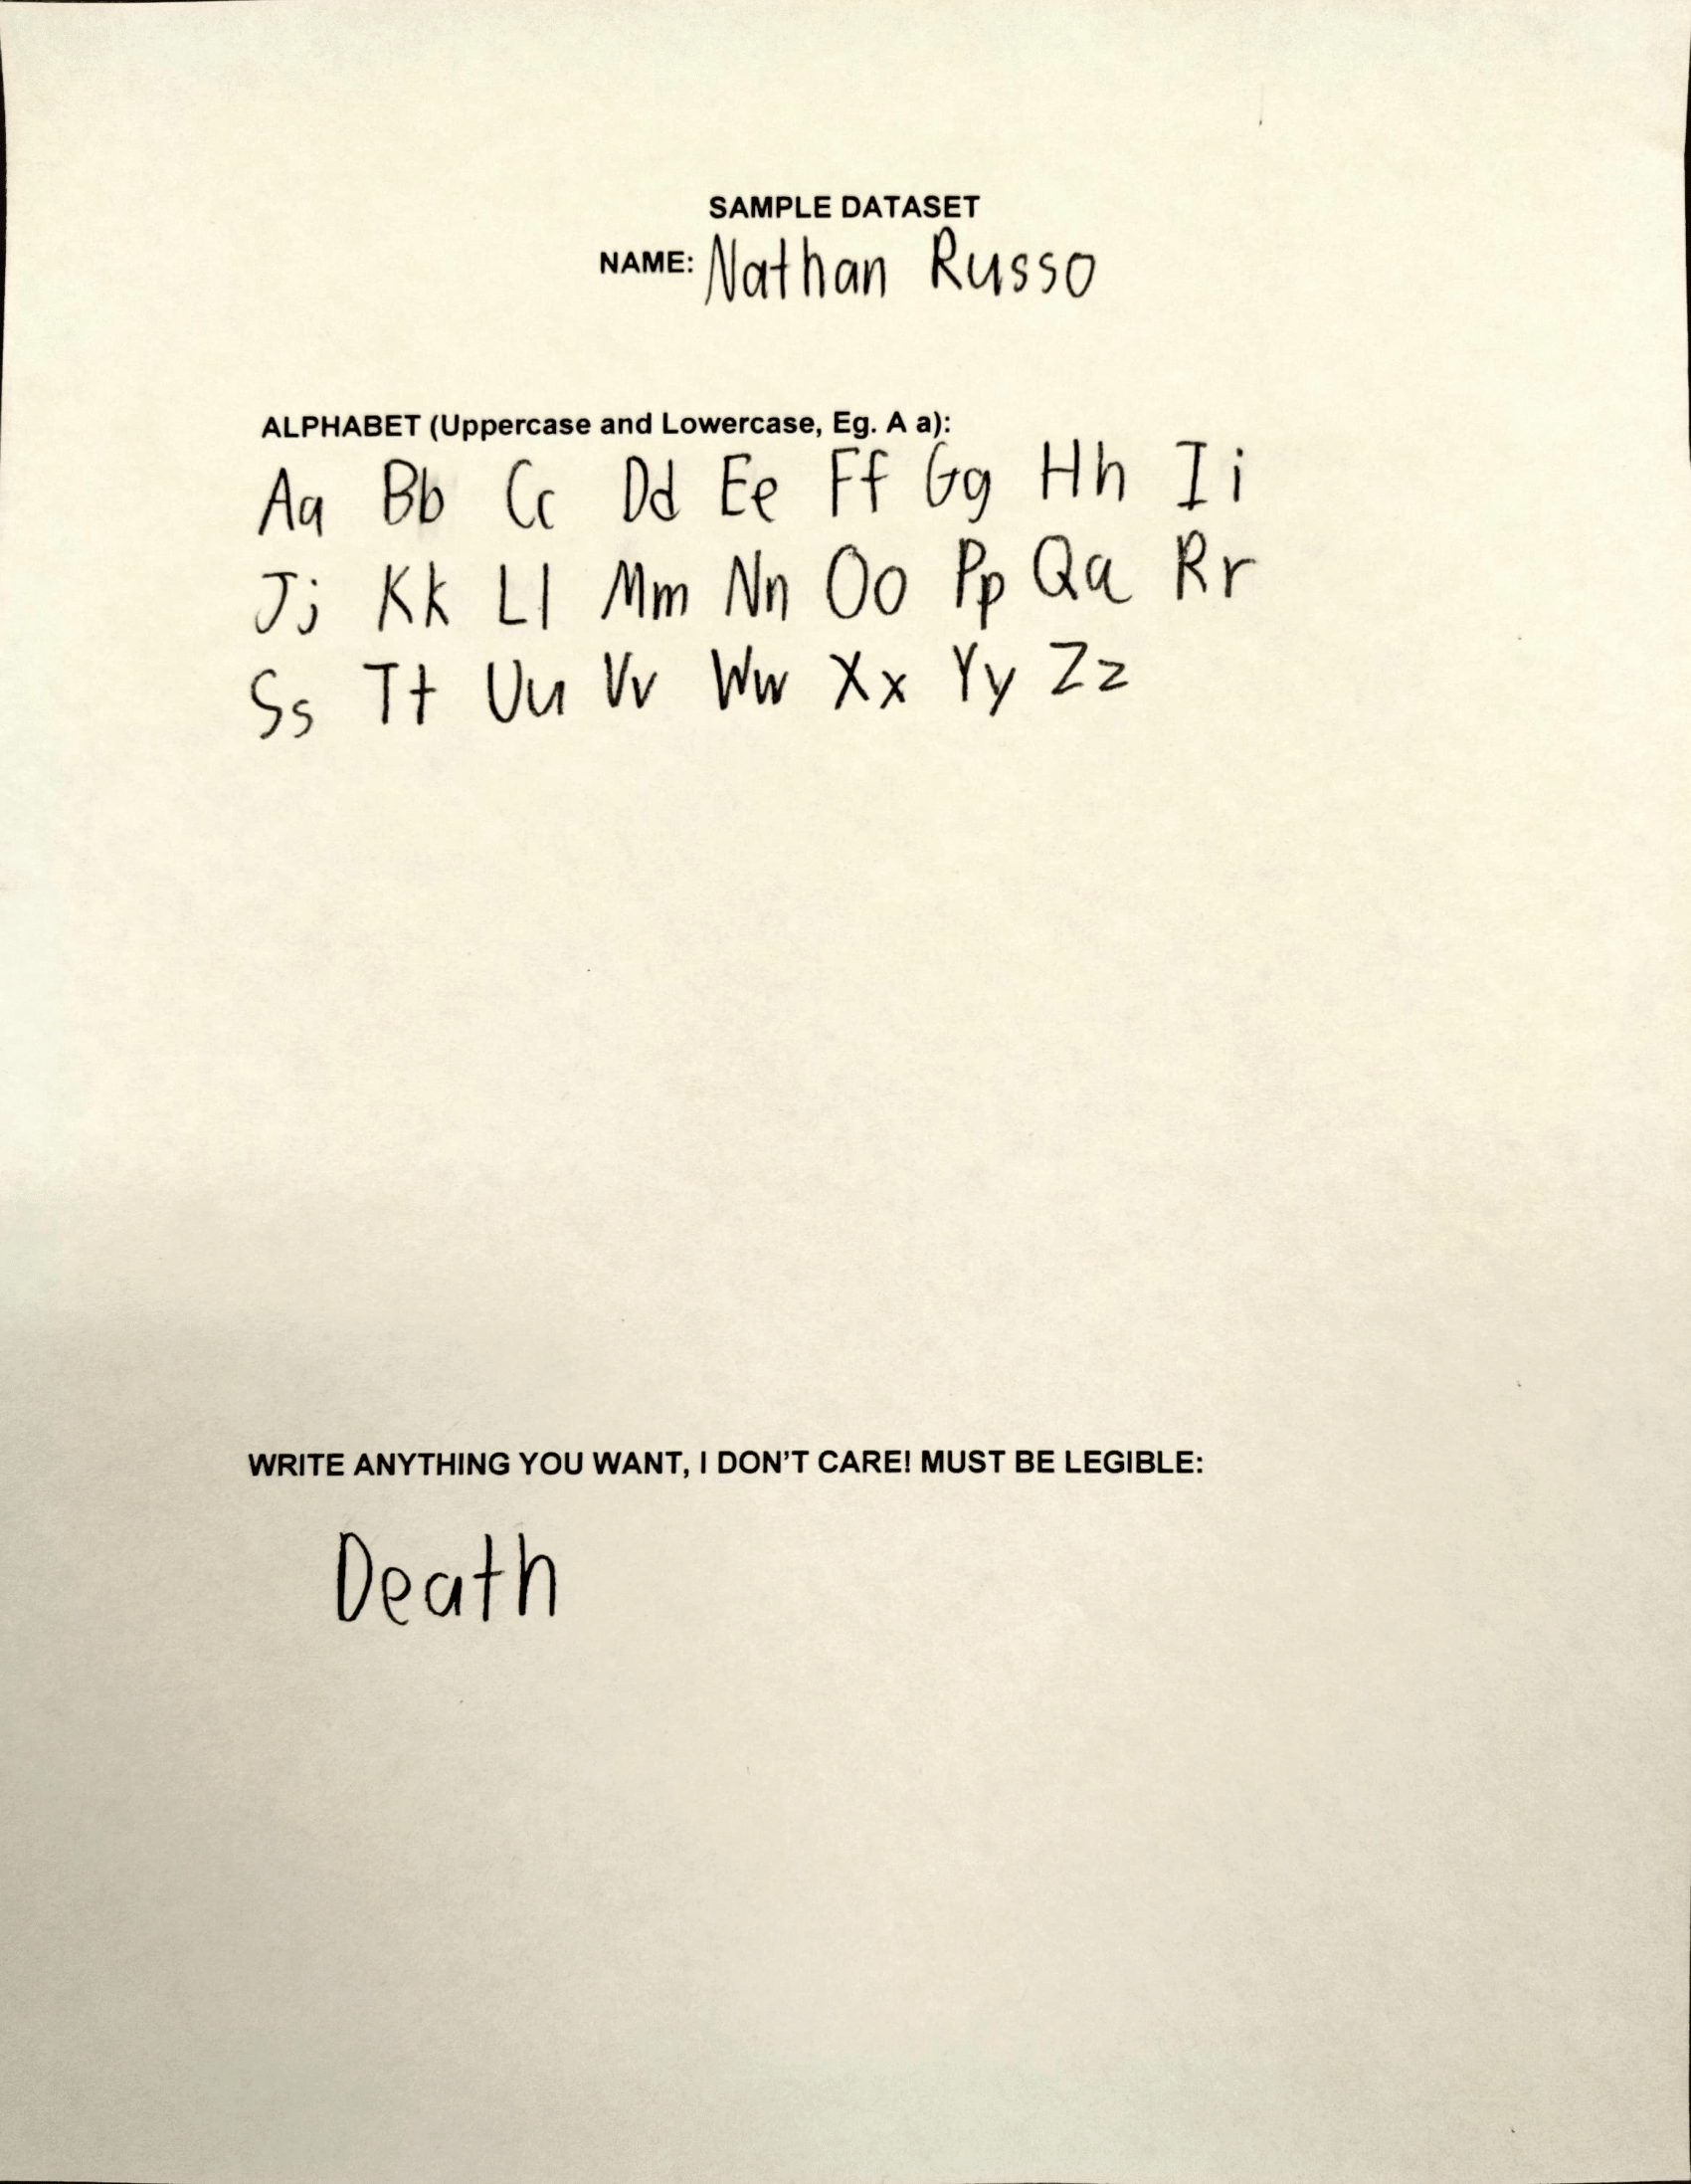 SAMPLE DATASET
NAME: Nathan Russo
ALPHABET (Uppercase and Lowercase, Eg. A a):
Aa Bb Cc Dd Ee Ff Gg Hh Ii
Jj Kk Ll Mm Nn Oo Pp Qa Rr
Ss Tt Uu Vv Ww Xx Yy Zz
WRITE ANYTHING YOU WANT, I DON'T CARE! MUST BE LEGIBLE:
Death